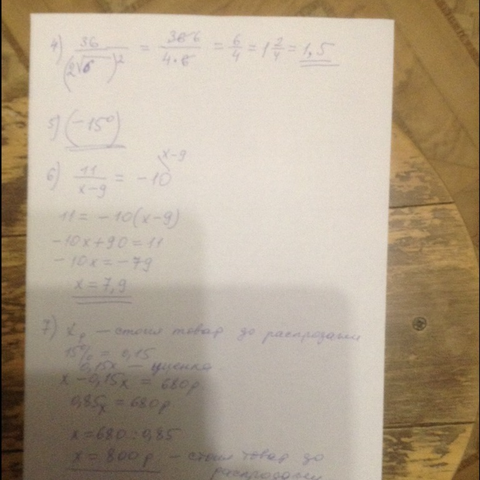 4) 36/(2√6)² = 36 6/4·6 = 6/4 = 1 2/4 = 1,5
5) (-15°)
6) 11/x-9 = -10 x-9
11 = -10(x-9)
-10x+90=11
-10x=-79
x=7,9
7) x р — стоил товар до распродажи
15% = 0,15
0,15x — уценка
x-0,15x = 680р.
0,85x = 680р
x=680:0,85
x=800р. — стоил товар до
распродажи